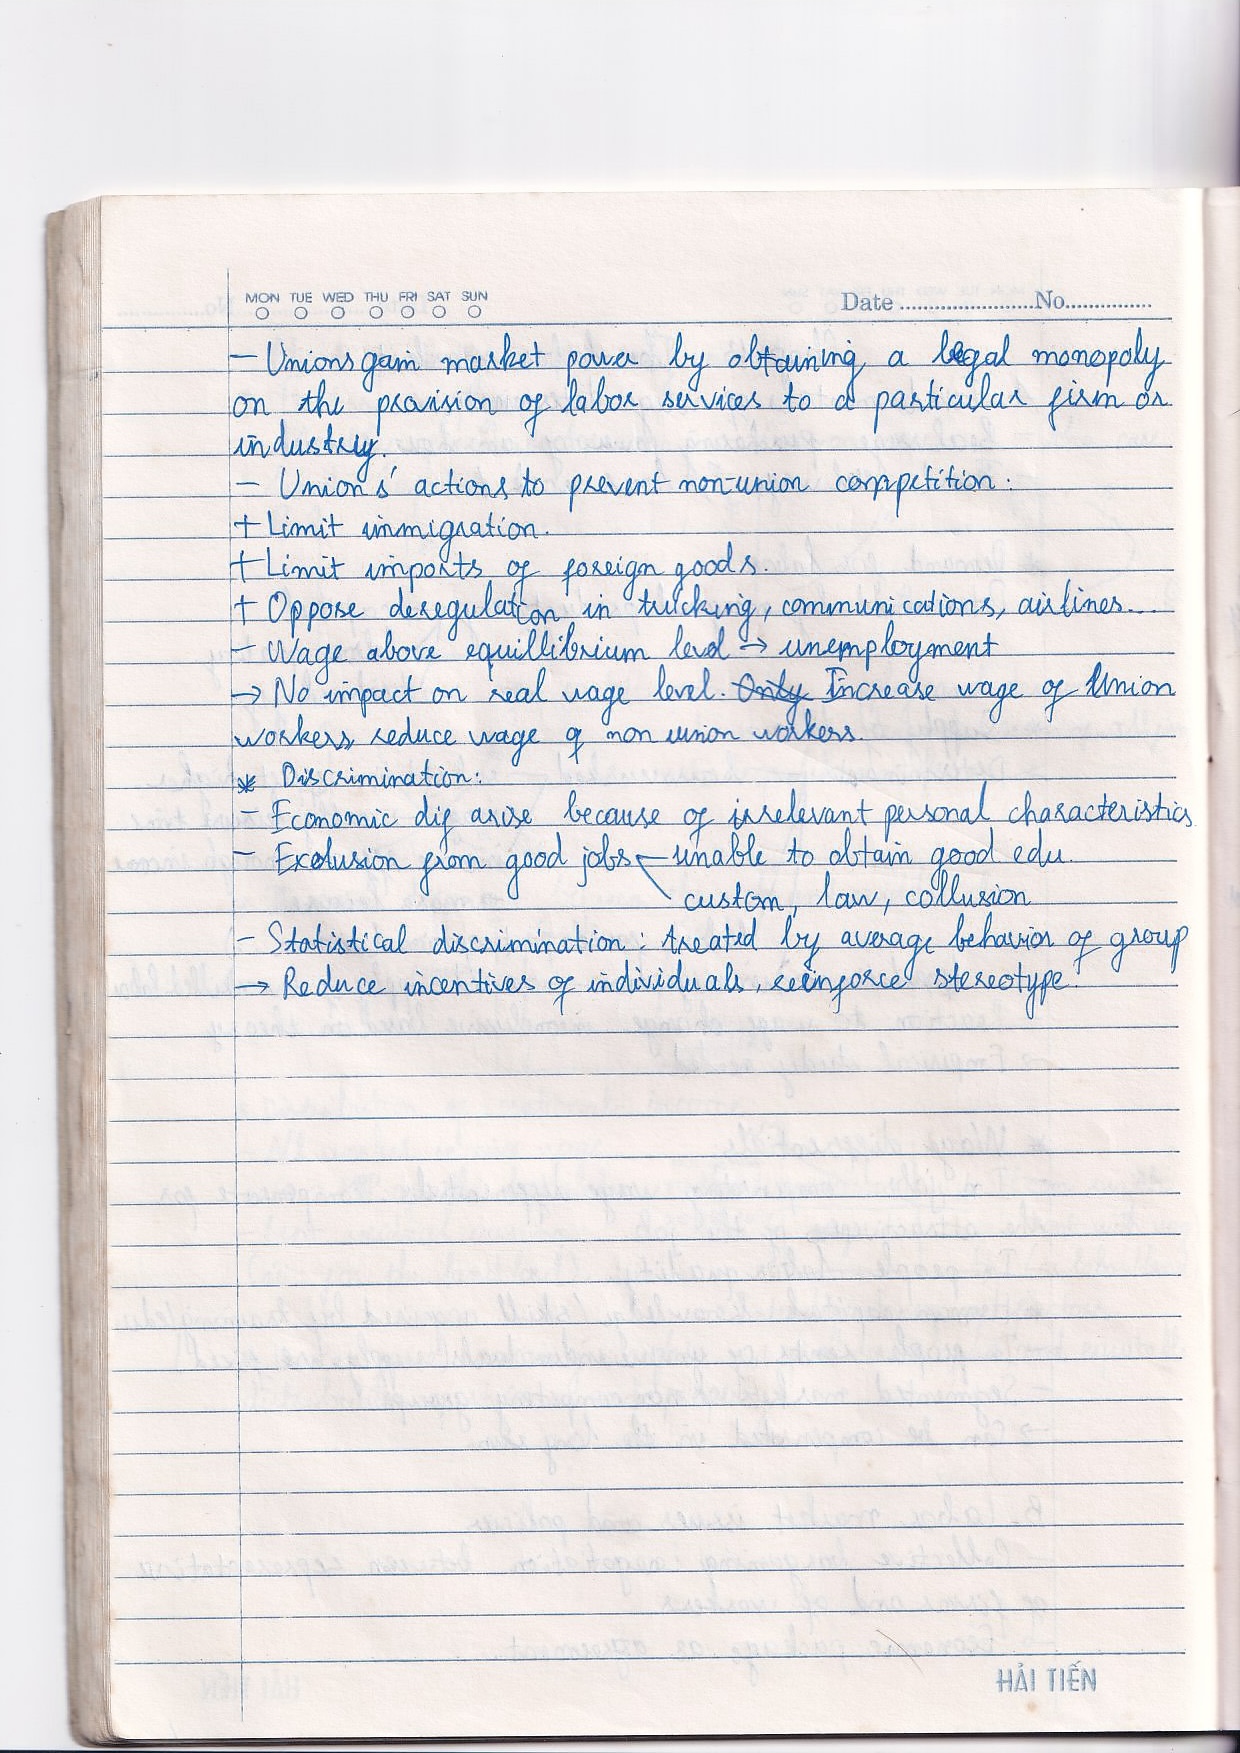 MON TUE WED THU FRI SAT SUN
Date ........................No................
– Unions gain market power by obtaining a legal monopoly
on the provision of labor services to a particular firm or
industry.
– Union's actions to prevent non-union competition:
+ Limit immigration.
+ Limit imports of foreign goods.
+ Oppose deregulation in trucking, communications, airlines...
– Wage above equillibrium level → unemployment
→ No impact on real wage level. Only Increase wage of Union
workers, reduce wage of non union workers.
* Discrimination:
– Economic dif arise because of irrelevant personal characteristics
– Exclusion from good jobs ← unable to obtain good edu.
custom, law, collusion
– Statistical discrimination: treated by average behavior of group
→ Reduce incentives of individuals, reeinforce stereotype.
HẢI TIẾN